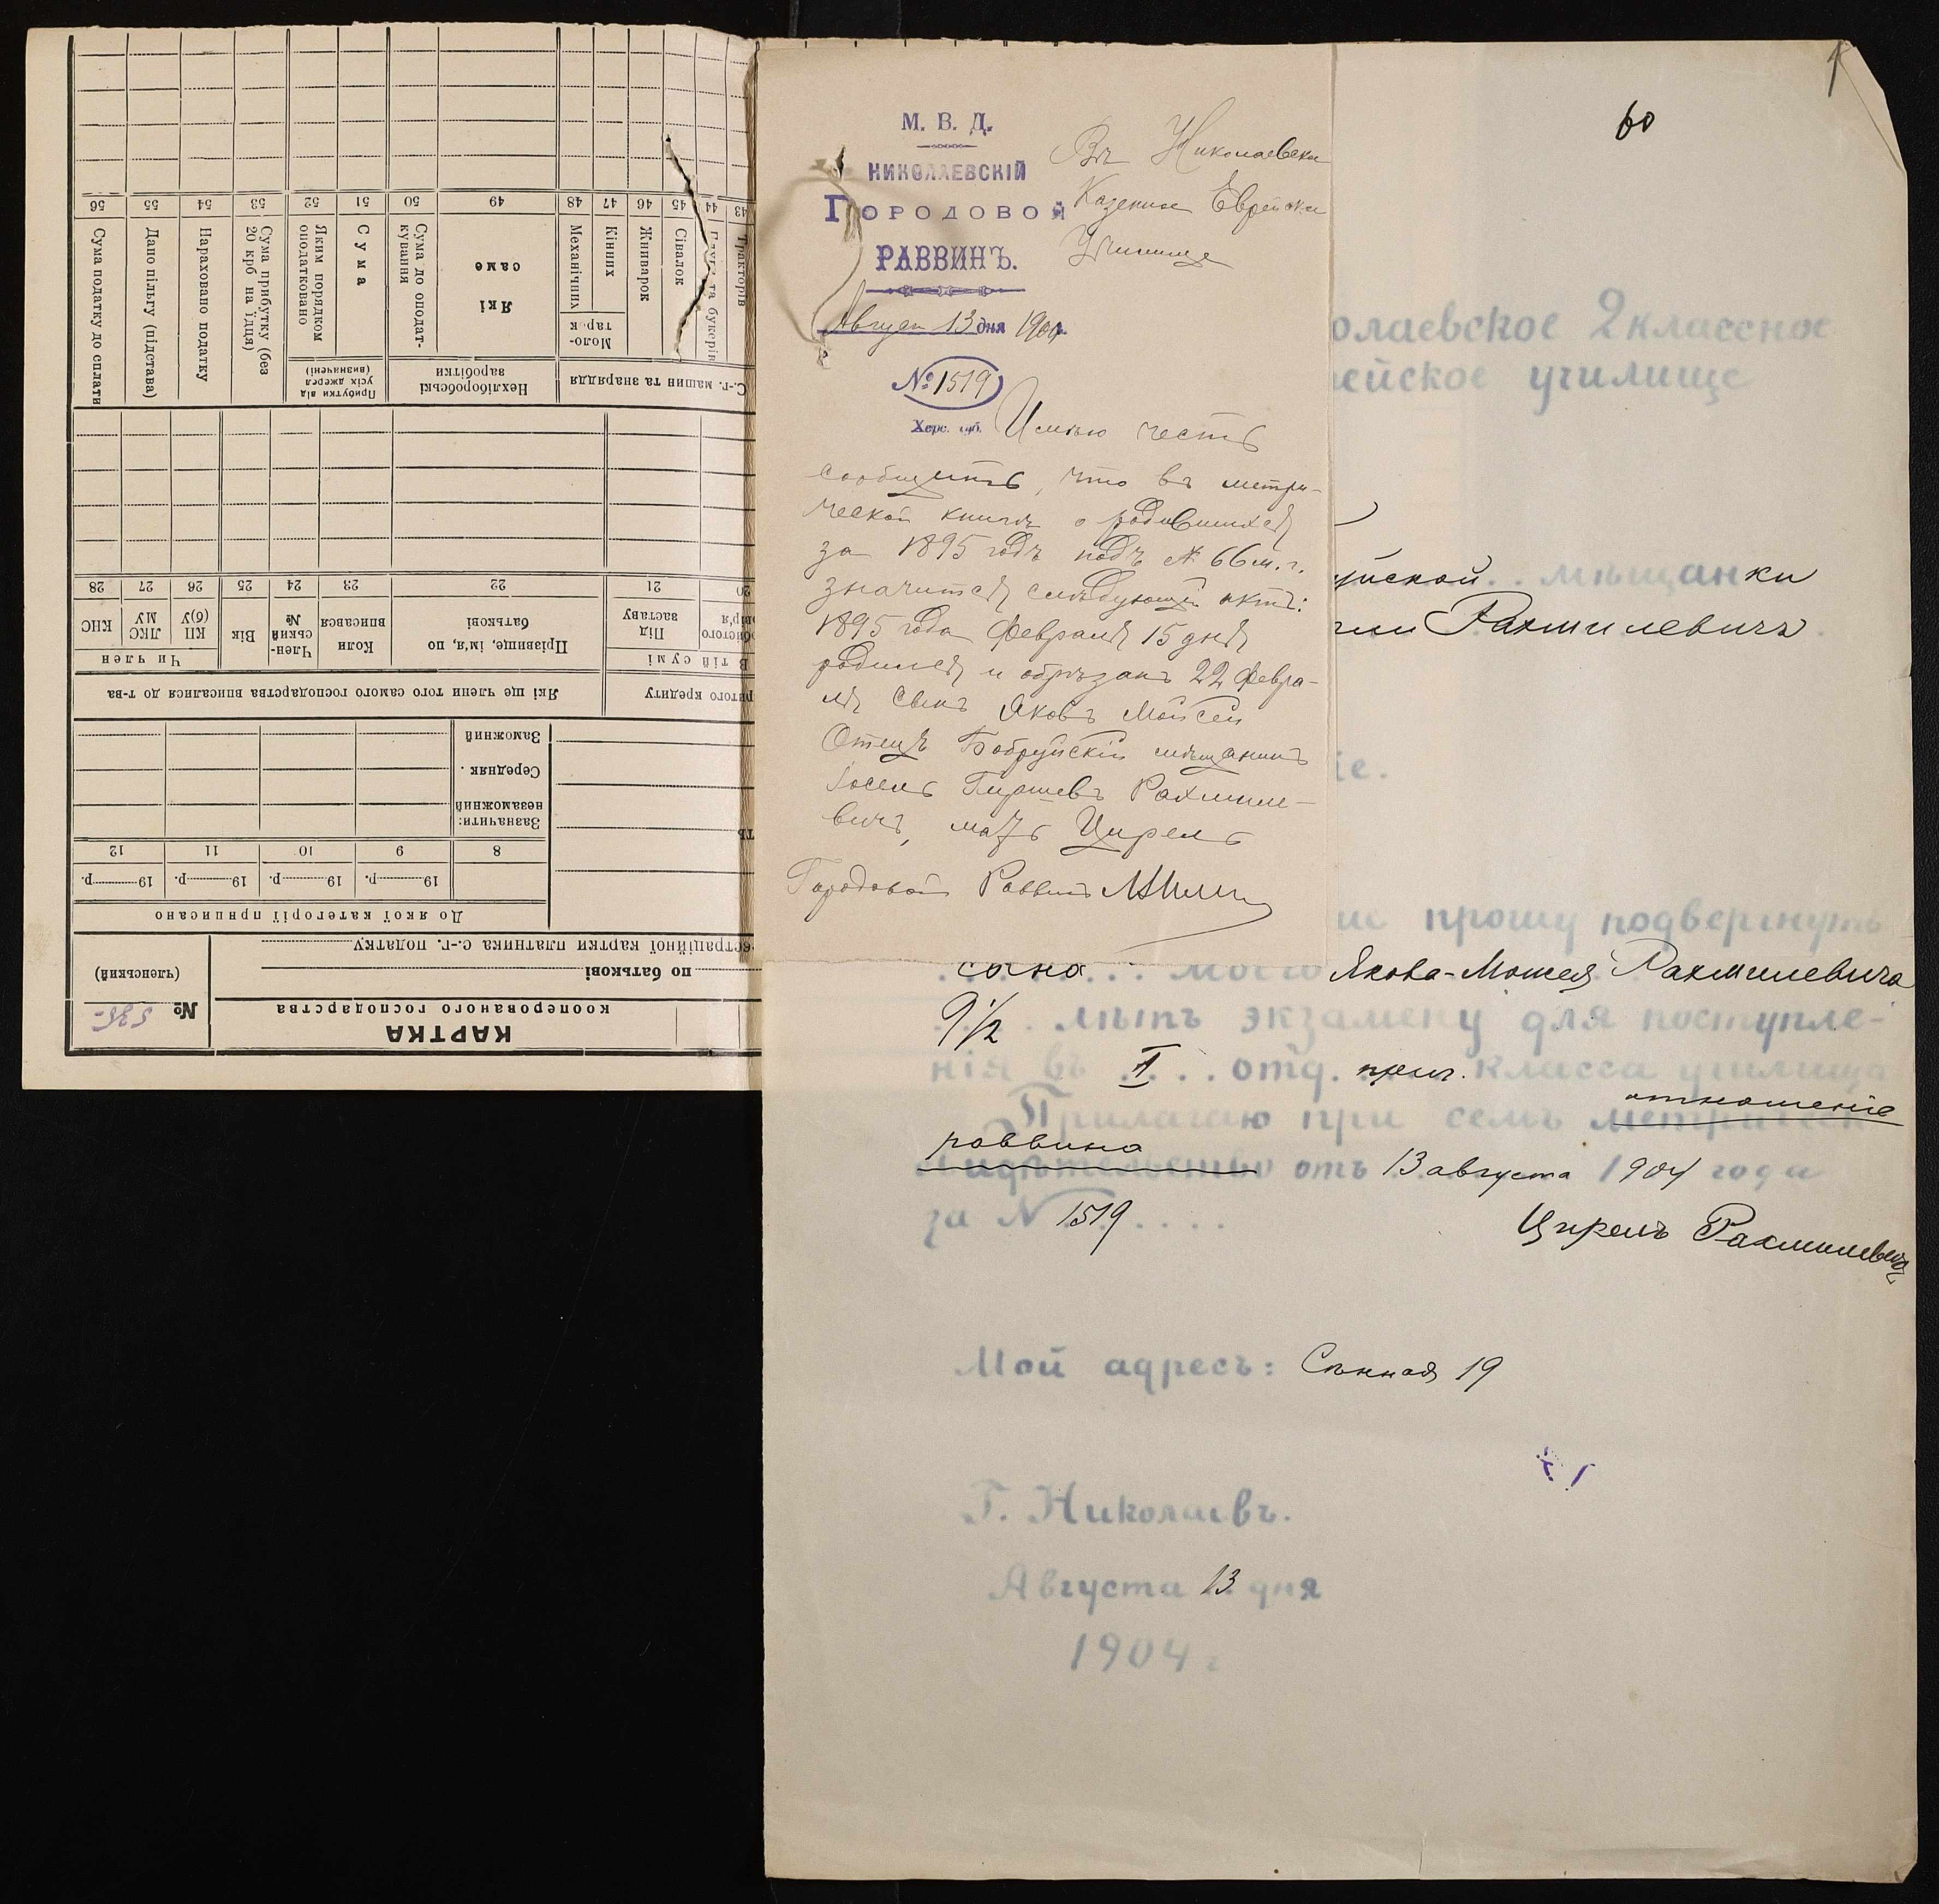 М. В. Д.
НИКОЛАЕВСКІЙ
ГОРОДОВОЙ
РАВВИНЪ.
Август 13 дня 1904 г.
№ 1519
Херс. губ.
Въ Николаевское
Казенное Еврейское
Училище
Имѣю честь
сообщить, что въ метри-
ческой книгѣ о родившихся
за 1895 годъ подъ № 66 м. г.
значится слѣдующій актъ:
1895 года Февраля 15 дня
родился и обрѣзанъ 22 Февра-
ля сынъ Яковъ Мойсей
Отецъ Бобруйскій мѣщанинъ
Іосель Гиршевъ Рахмиле-
вичъ, мать Цирель
Городовой Раввинъ
60
олаевское 2 классное
ейское училище
уйской.. мѣщанки
Рахмилевичъ
іе.
прошу подвергнуть
сына моего Якова-Мошея Рахмилевича
9 1/2 лѣтъ экзамену для поступле-
нія въ II отд. приг. класса училища
Прилагаю при семъ метрическ
отношеніе
раввина
свидѣтельство отъ 13 августа 1904 года
за № 1519
Цирель Рахмилевичъ
Мой адресъ: Сѣнная 19
Г. Николаевъ.
Августа 13 дня
1904 г
КАРТКА
кооперованого господарства
№ 535
(членський)
по батькові
еєстраційної картки платника с.-г. податку
До якої категорії приписано
19 р. 19 р. 19 р. 19 р.
8 9 10 11 12
Зазначити:
незаможний
Середняк
Заможний
ритого кредиту
Які ще члени того самого господарства вписалися до т-ва
В тій сумі
Чи член
обистого
вір'я
Під заставу
Прізвище, ім'я, по батькові
Коли вписався
Член-ський №
Вік
КП (б)У
ЛКС МУ
КНС
20 21 22 23 24 25 26 27 28
С.-г. машин та знаряддя
Нехліборобські заробітки
Прибутки від усіх джерел (визначені)
Тракторів
та букерів
Сівалок
Жниварок
Моло-тарок
Кінних
Механічних
Які саме
Сума до оподат-кування
Сума
Яким порядком оподатковано
Сума прибутку (без 20 крб на їдця)
Нараховано податку
Дано пільгу (підстава)
Сума податку до сплати
43 44 45 46 47 48 49 50 51 52 53 54 55 56